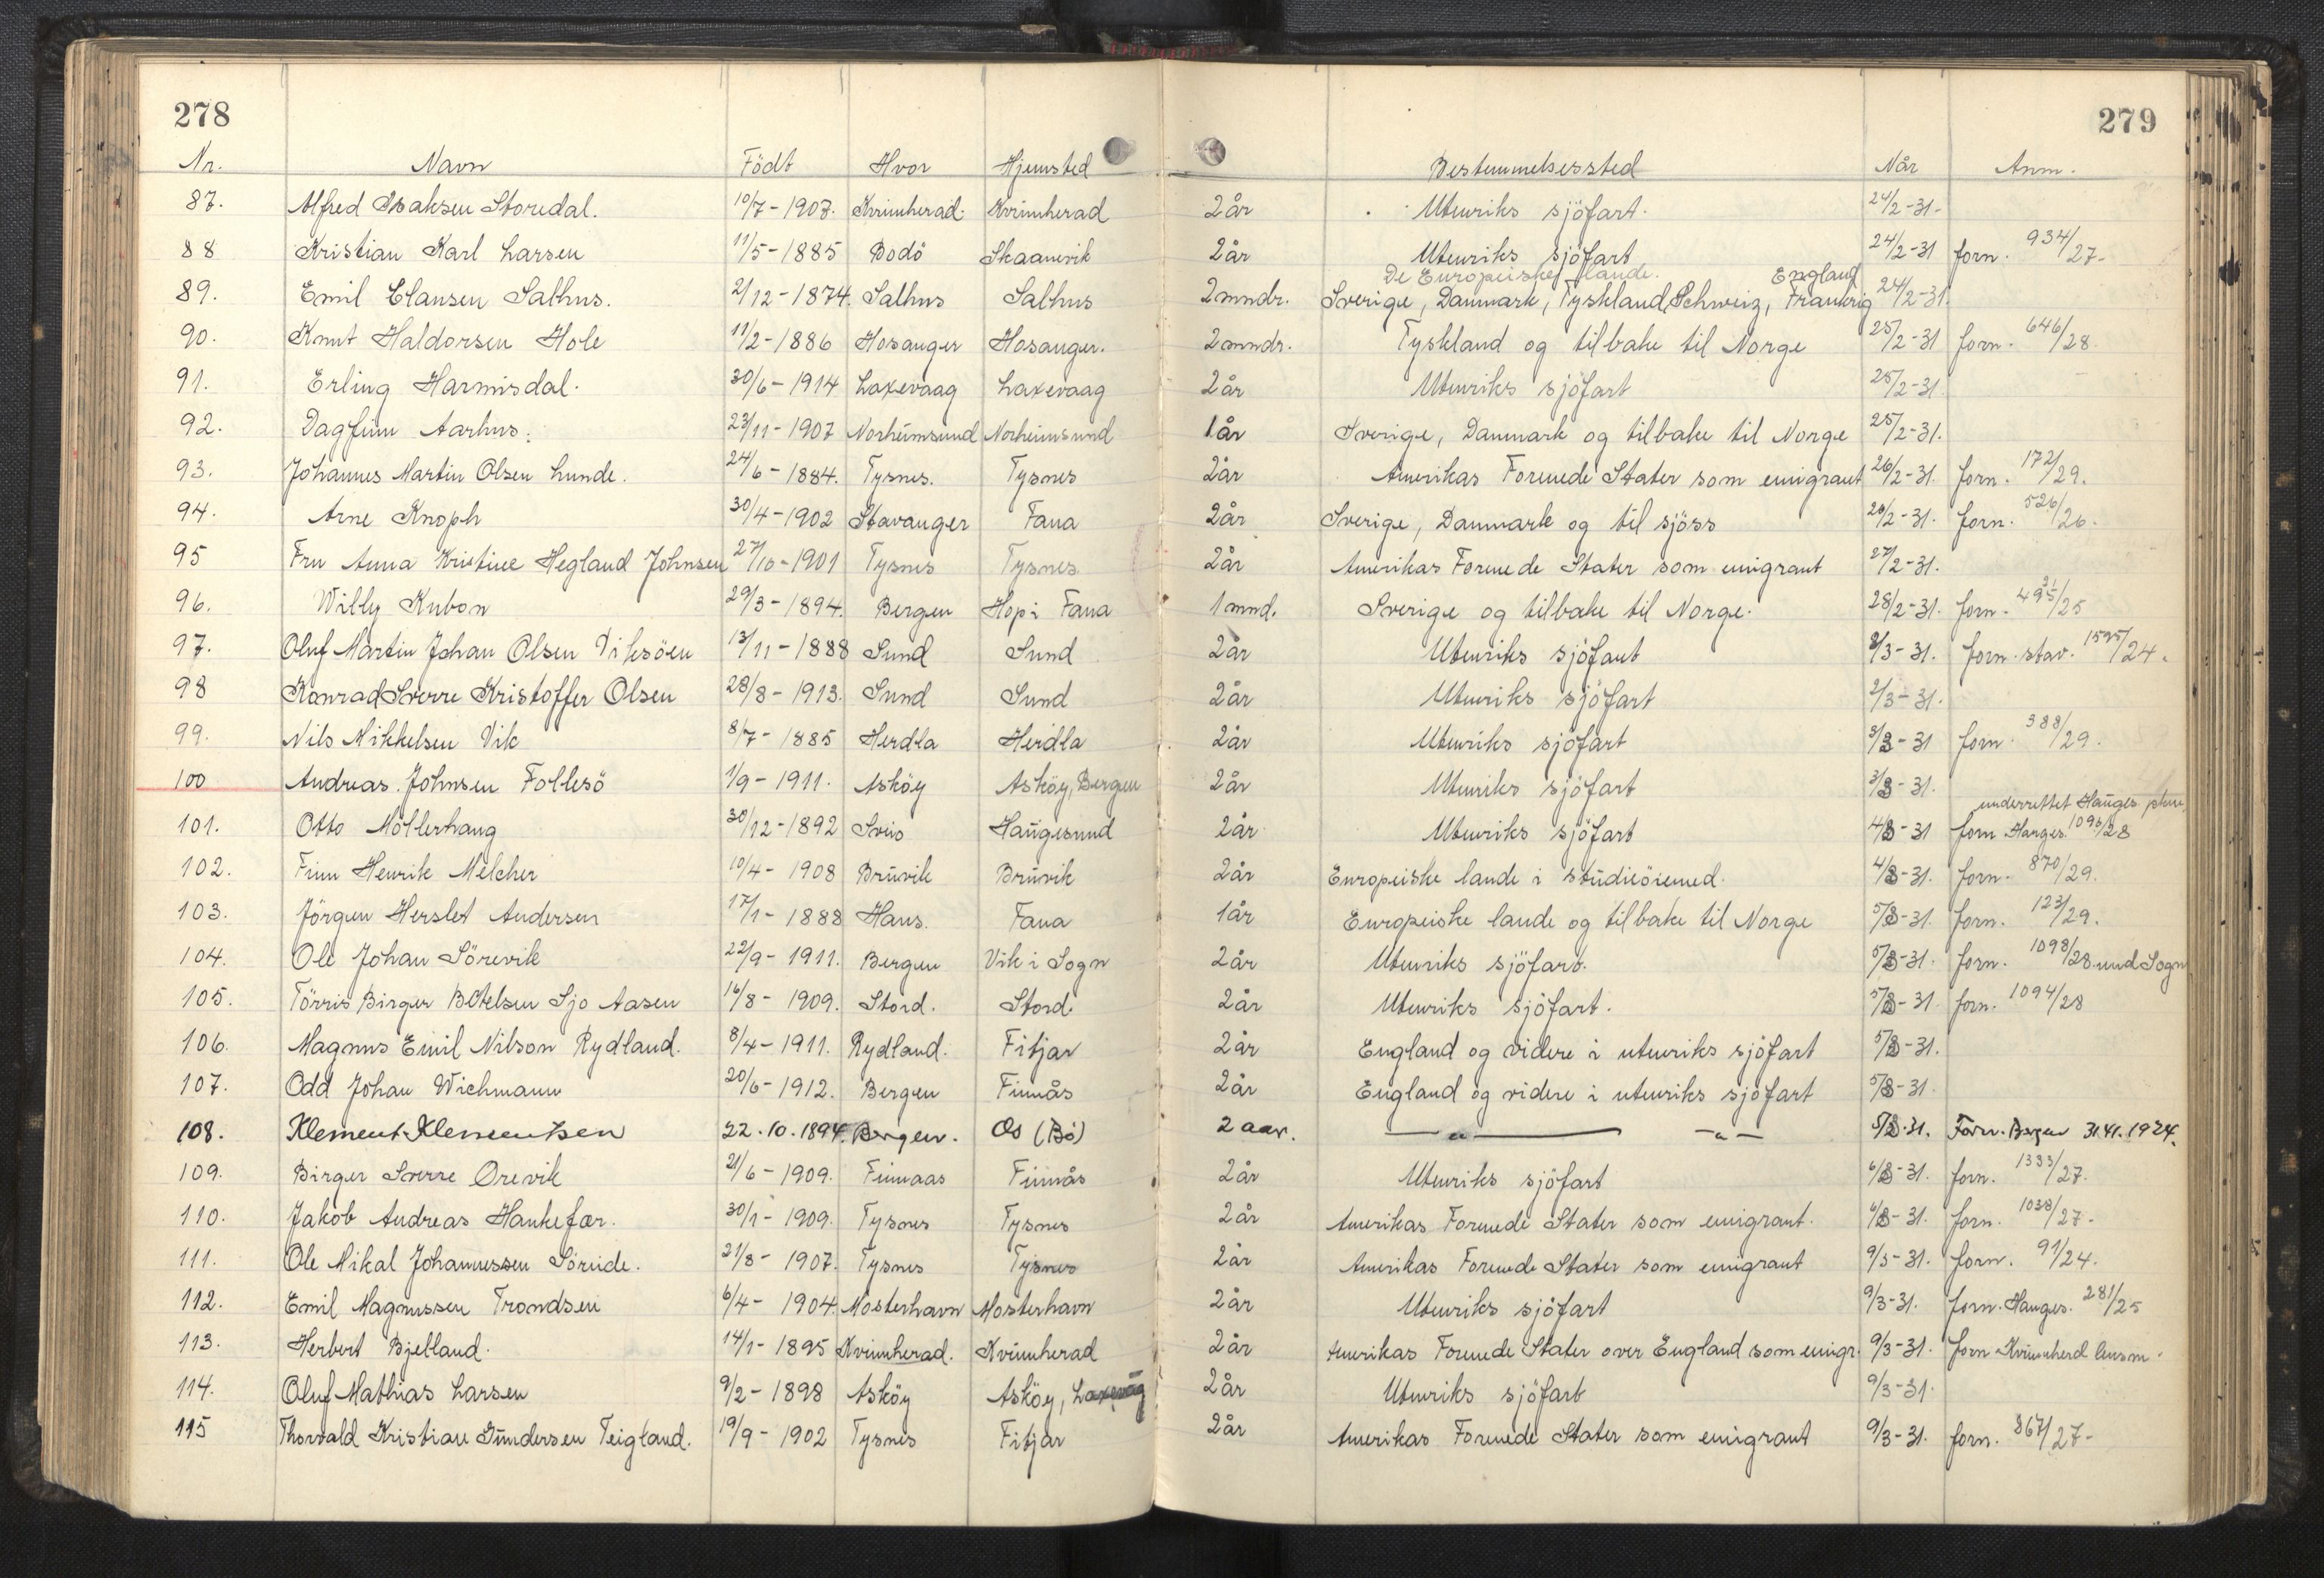 278
279
Nr. Navn Födt Hvor Hjemsted Bestemmelsessted Når Anm.
87. Alfred Isaksen Storedal. 10/7-1907. Kvinnherad. Kvinnherad 2 år Utenriks sjöfart. 24/2-31-
88 Kristian Karl Larsen 11/5-1885 Bodö Skaanevik 2 år Utenriks sjöfart 24/2-31 forn. 934/27-
De Europeiske lande. England
89. Emil Clausen Salhus. 2/12-1874. Salhus Salhus 2 mndr. Sverige, Danmark, Tyskland, Schweiz, Frankrig 24/2-31.
90. Knut Haldorsen Hole 11/2-1886 Hosanger Hosanger. 2 mndr. Tyskland og tilbake til Norge 25/2-31 forn. 646/28.
91. Erling Harmisdal. 30/6-1914 Laxevaag Laxevaag 2 år Utenriks sjöfart 25/2-31
92. Dagfinn Aarhus. 23/11-1907 Norheimsund Norheimsund 1 år Sverige, Danmark og tilbake til Norge 25/2-31.
93. Johannes Martin Olsen Lunde. 24/6-1884. Tysnes. Tysnes 2 år Amerikas Forenede Stater som emigrant 26/2-31. forn. 172/29.
94. Arne Knoph 30/4-1902 Stavanger Fana 2 år Sverige, Danmark og til sjöss 26/2-31. forn. 526/26.
95 Fru Anna Kristine Hegland Johnsen 27/10-1901 Tysnes Tysnes 2 år Amerikas Forenede Stater som emigrant 27/2-31.
96. Willy Kubon 29/3-1894. Bergen Hop i Fana 1 mnd. Sverige og tilbake til Norge. 28/2-31. forn. /25
97. Oluf Martin Johan Olsen Viksöen 13/11-1888 Sund Sund 2 år Utenriks sjöfart /3-31. forn. stav. 1595/24.
98 Konrad Sverre Kristoffer Olsen 28/8-1913. Sund Sund 2 år Utenriks sjöfart 2/3-31.
99. Nils Mikkelsen Vik 8/7-1885 Herdla Herdla 2 år Utenriks sjöfart 3/3-31 forn. 388/29.
100 Andreas Johnsen Follesö 1/9-1911. Asköy Asköy, Bergen 2 år Utenriks sjöfart 3/3-31.
underrettet Hauges.
101. Otto Möllerhaug 30/12-1892 Sveio Haugesund 2 år Utenriks sjöfart 4/3-31 forn Hauges. 1093/28
102. Finn Henrik Melcher 10/4-1908 Bruvik Bruvik 2 år Europeiske lande i studieöiemed. 4/3-31. forn. 870/29.
103. Jörgen Herslet Andersen 17/1-1888 Haus. Fana 1 år Europeiske lande og tilbake til Norge 5/3-31. forn. 123/29.
104. Ole Johan Sörevik 22/9-1911. Bergen Vik i Sogn 2 år Utenriks sjöfart. 5/3-31. forn. 1098/28. und Sogn
105. Törris Birger Botelsen Sjo Aasen 16/8-1909. Stord. Stord. 2 år Utenriks sjöfart. 5/3-31. forn. 1094/28
106. Magnus Emil Nilson Rydland. 8/4-1911. Rydland. Fitjar 2 år England og videre i utenriks sjöfart 5/3-31.
107. Odd Johan Wichmann 20/6-1912. Bergen Finnås 2 år England og videre i utenriks sjöfart 5/3-31.
108. Klement Klementsen 22.10.1894. Bergen. Os (Bö) 2 aar. —"— —"— 5/3.31. Forn. Bergen 1924.
109. Birger Sverre Orevik 21/6-1909. Finnaas Finnås 2 år Utenriks sjöfart 6/3-31. forn. 1333/27.
110. Jakob Andreas Hankefær. 30/1-1909. Tysnes Tysnes 2 år Amerikas Forenede Stater som emigrant. 6/3-31. forn. 1038/27-
111. Ole Mikal Johannessen Söreide. 21/8-1907. Tysnes Tysnes 2 år Amerikas Forenede Stater som emigrant 9/3-31. forn. 91/24.
112. Emil Magnussen Trondsen 6/4-1904. Mosterhavn Mosterhavn 2 år Utenriks sjöfart 9/3-31. forn. Hauges. 281/25
113. Herbert Bjelland. 14/1-1895 Kvinnherad. Kvinnherad 2 år Amerikas Forenede Stater over England som emigr. 9/3-31. forn Kvinnherd lensm.
114. Oluf Mathias Larsen 9/2-1898 Asköy Asköy, Laxevåg 2 år Utenriks sjöfart 9/3-31.
115 Thorvald Kristian Gundersen Teigland. 19/9-1902 Tysnes Fitjar 2 år Amerikas Forenede Stater som emigrant 9/3-31. forn. 867/27-